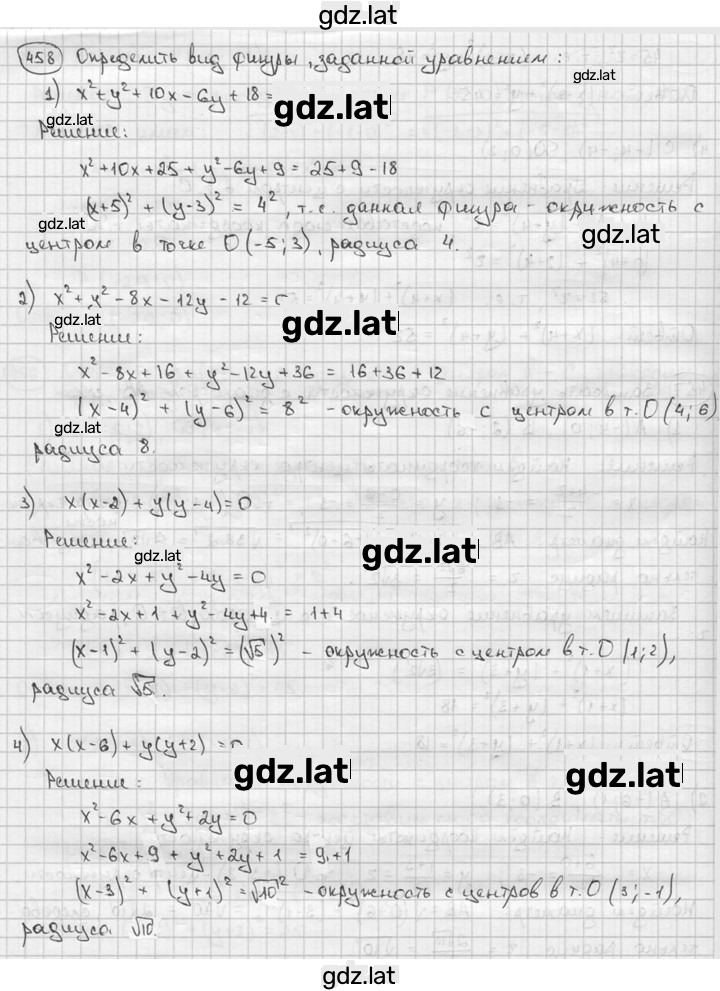 gdz.lat
458 Определить вид фигуры, заданной уравнением:
gdz.lat
1) x²+y²+10x-6y+18=
gdz.lat
Решение:
x²+10x+25+y²-6y+9=25+9-18
(x+5)²+(y-3)²=4², т.е. данная фигура - окружность с
gdz.lat
gdz.lat
центром в точке O(-5;3), радиуса 4.
2) x²+y²-8x-12y-12=
gdz.lat
gdz.lat
Решение:
x²-8x+16+y²-12y+36=16+36+12
(x-4)²+(y-6)²=8² - окружность с центром в т. O(4;6)
gdz.lat
радиуса 8.
3) x(x-2)+y(y-4)=0
Решение:
gdz.lat
gdz.lat
x²-2x+y²-4y=0
x²-2x+1+y²-4y+4=1+4
(x-1)²+(y-2)²=(√5)² - окружность с центром в т. O(1;2),
радиуса √5.
4) x(x-6)+y(y+2)=
gdz.lat
gdz.lat
Решение:
x²-6x+y²+2y=0
x²-6x+9+y²+2y+1=9+1
(x-3)²+(y+1)²=√10² - окружность с центров в т. O(3;-1),
радиуса √10.
gdz.lat